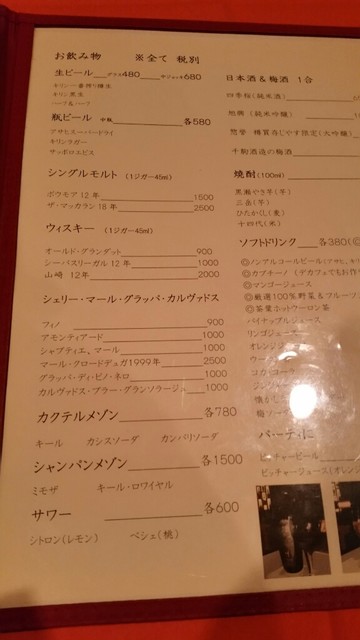 お飲み物　※全て 税別
生ビール グラス480 中ジョッキ680
キリン一番搾り樽生
キリン黒生
ハーフ＆ハーフ
瓶ビール 中瓶 各580
アサヒスーパードライ
キリンラガー
サッポロエビス
シングルモルト (1ジガー45ml)
ボウモア 12年 1500
ザ・マッカラン 18年 2500
ウィスキー (1ジガー45ml)
オールド・グランダッド 900
シーバスリーガル 12年 1000
山崎 12年 2000
シェリー・マール・グラッパ・カルヴァドス
フィノ 900
アモンティアード 1000
シャブティエ、マール 1000
マール・グロードデュガ1999年 2500
グラッパ・ディ・ピノ・ネロ 1000
カルヴァドス・ブラー・グランソラージュ 1000
カクテルメゾン 各780
キール　カシスソーダ　カンパリソーダ
シャンパンメゾン 各1500
ミモザ　キール・ロワイヤル
サワー 各600
シトロン(レモン)　ペシェ(桃)
日本酒＆梅酒　1合
四季桜(純米酒)
旭興 (純米吟醸)
惣誉 樽質ろじやす限定(大吟醸)
十駒酒造の梅酒
焼酎(100ml)
黒瀬やき芋(芋)
三岳(芋)
ひたかくし(麦)
十四代(米)
ソフトドリンク 各380(
◎ノンアルコールビール(アサヒ、キリ
◎カプチーノ (デカフェでもお作
◎マンゴージュース
◎厳選100%野菜＆フルーツ
◎茶葉ホットウーロン茶
パイナップルジュース
リンゴジュース
オレンジ
ウー
コカ・コーラ
ジン
懐かし
梅ソー
パーティに
ピッチャービール
ピッチャージュース(オレン